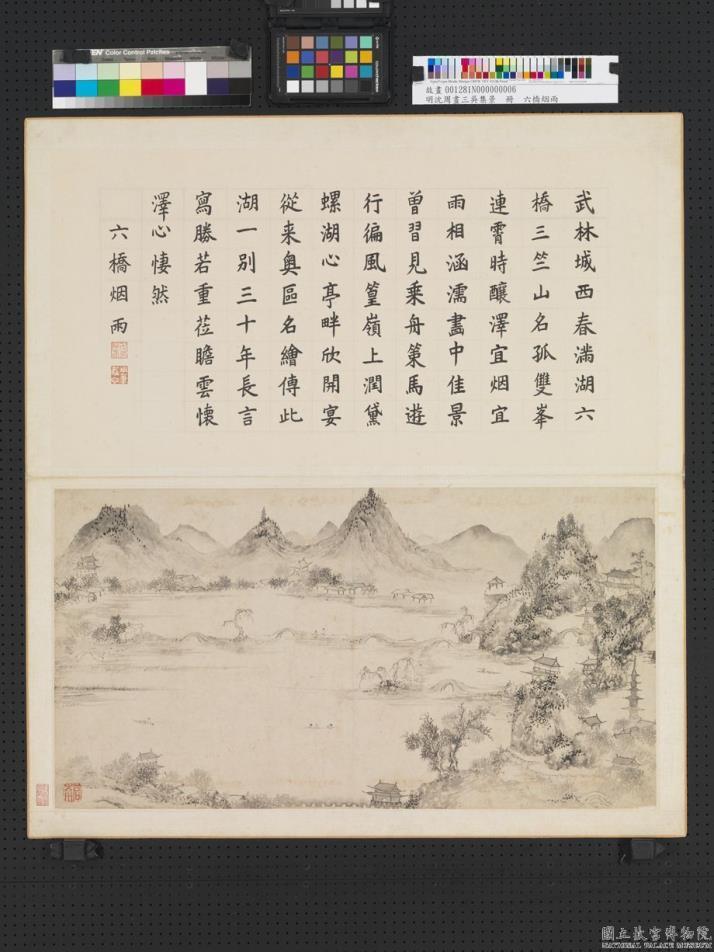 Color Control Patches
故畫 001281N000000006
明沈周畫三吳集景　冊　六橋烟雨
武林城西春滿湖六
橋三竺山名孤雙峯
連霄時釀澤宜烟宜
雨相涵濡畫中佳景
曾習見乗舟策馬遊
行徧風篁嶺上潤黛
螺湖心亭畔欣開宴
從来奥區名繪傳此
湖一别三十年長言
寫勝若重莅瞻雲懷
澤心悽然
六橋烟雨
國立故宮博物院
NATIONAL PALACE MUSEUM